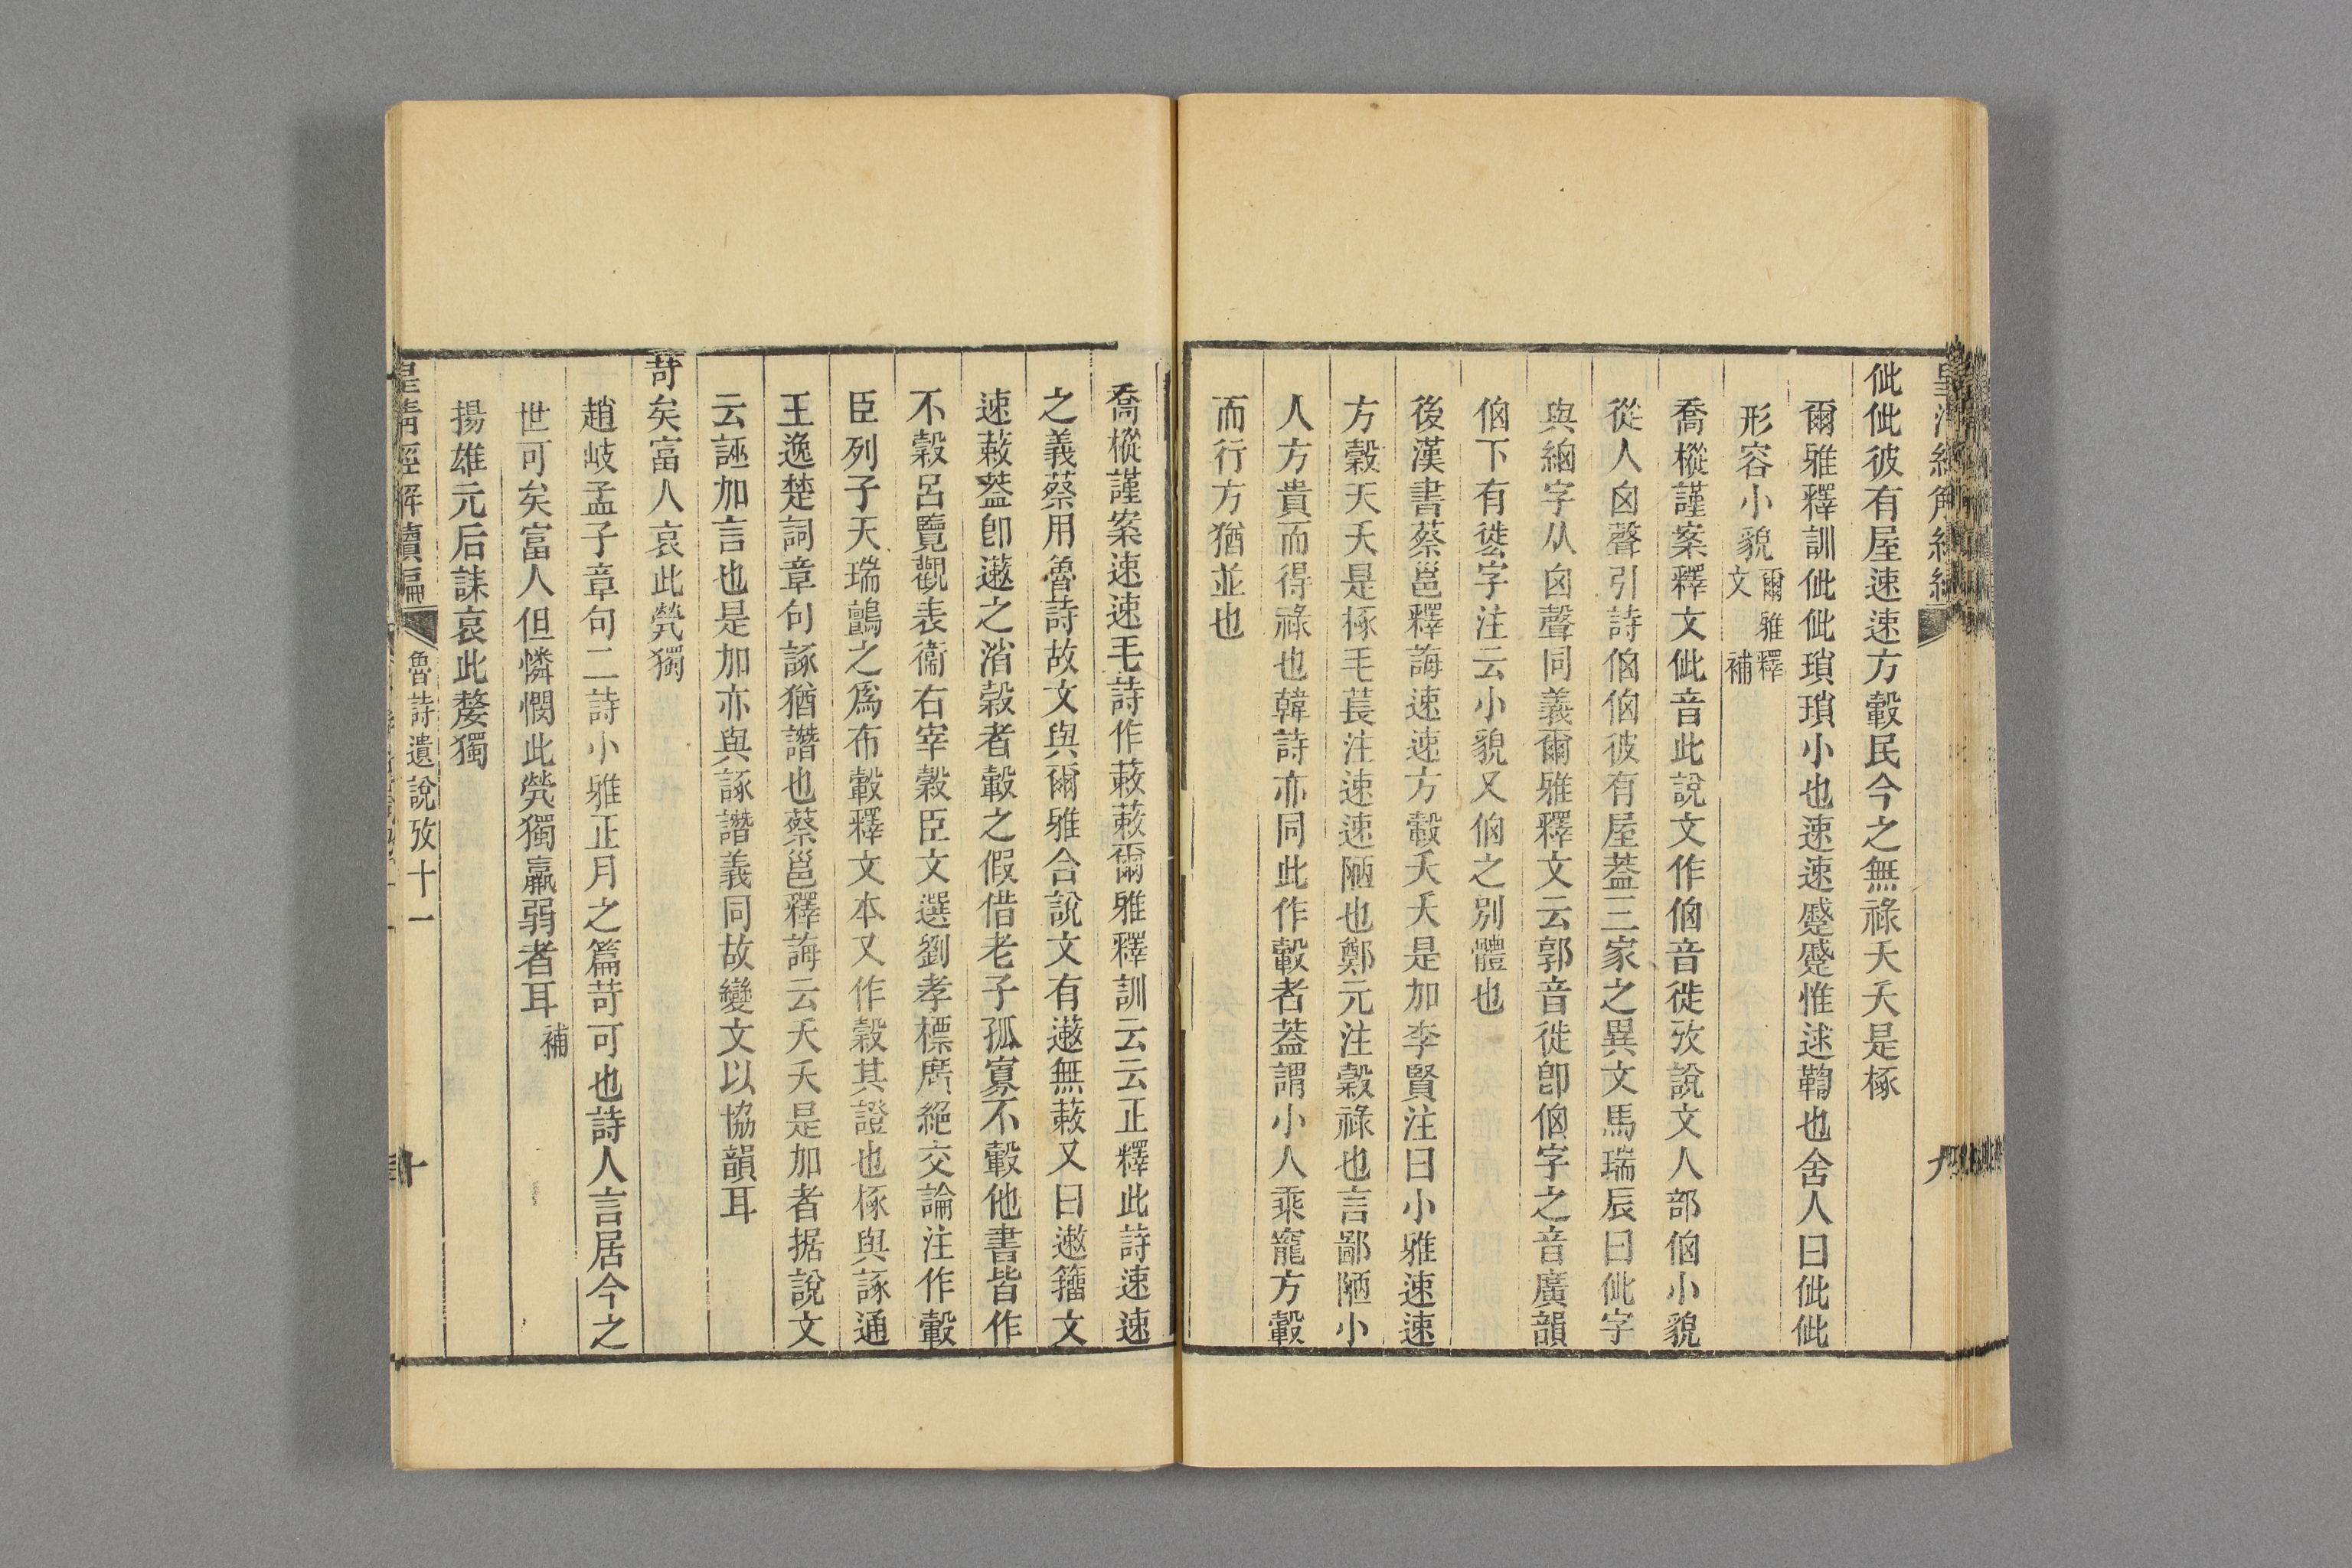 佌佌彼有屋速速方轂民今之無祿夭夭是椓
爾雅釋訓佌佌瑣瑣小也速速蹙蹙惟逑鞫也舍人曰佌佌
形容小貌爾雅釋文補
喬樅謹案釋文佌音此說文作㑄音徙攷說文人部㑄小貌
從人囟聲引詩㑄㑄彼有屋葢三家之異文馬瑞辰曰佌字
與細字从囟聲同義爾雅釋文云郭音徙卽㑄字之音廣韻
㑄下有㒾字注云小貌又㑄之別體也
後漢書蔡邕釋誨速速方轂夭夭是加李賢注曰小雅速速
方穀天夭是椓毛萇注速速陋也鄭元注穀祿也言鄙陋小
人方貴而得祿也韓詩亦同此作轂者葢謂小人乘寵方轂
而行方猶並也
喬樅謹案速速毛詩作蔌蔌爾雅釋訓云云正釋此詩速速
之義蔡用魯詩故文與爾雅合說文有遬無蔌又曰遬籀文
速蔌葢卽遬之消穀者轂之假借老子孤寡不轂他書皆作
不穀呂覽觀表衞右宰穀臣文選劉孝標廣絕交論注作轂
臣列子天瑞鷣之爲布轂釋文本又作穀其證也椓與諑通
王逸楚詞章句諑猶譖也蔡邕釋誨云夭夭是加者据說文
云誣加言也是加亦與諑譖義同故變文以協韻耳
苛矣富人哀此煢獨
趙岐孟子章句二詩小雅正月之篇苛可也詩人言居今之
世可矣富人但憐憫此煢獨羸弱者耳補
揚雄元后誄哀此嫠獨
皇清經解續編
魯詩遺說攷十一
十